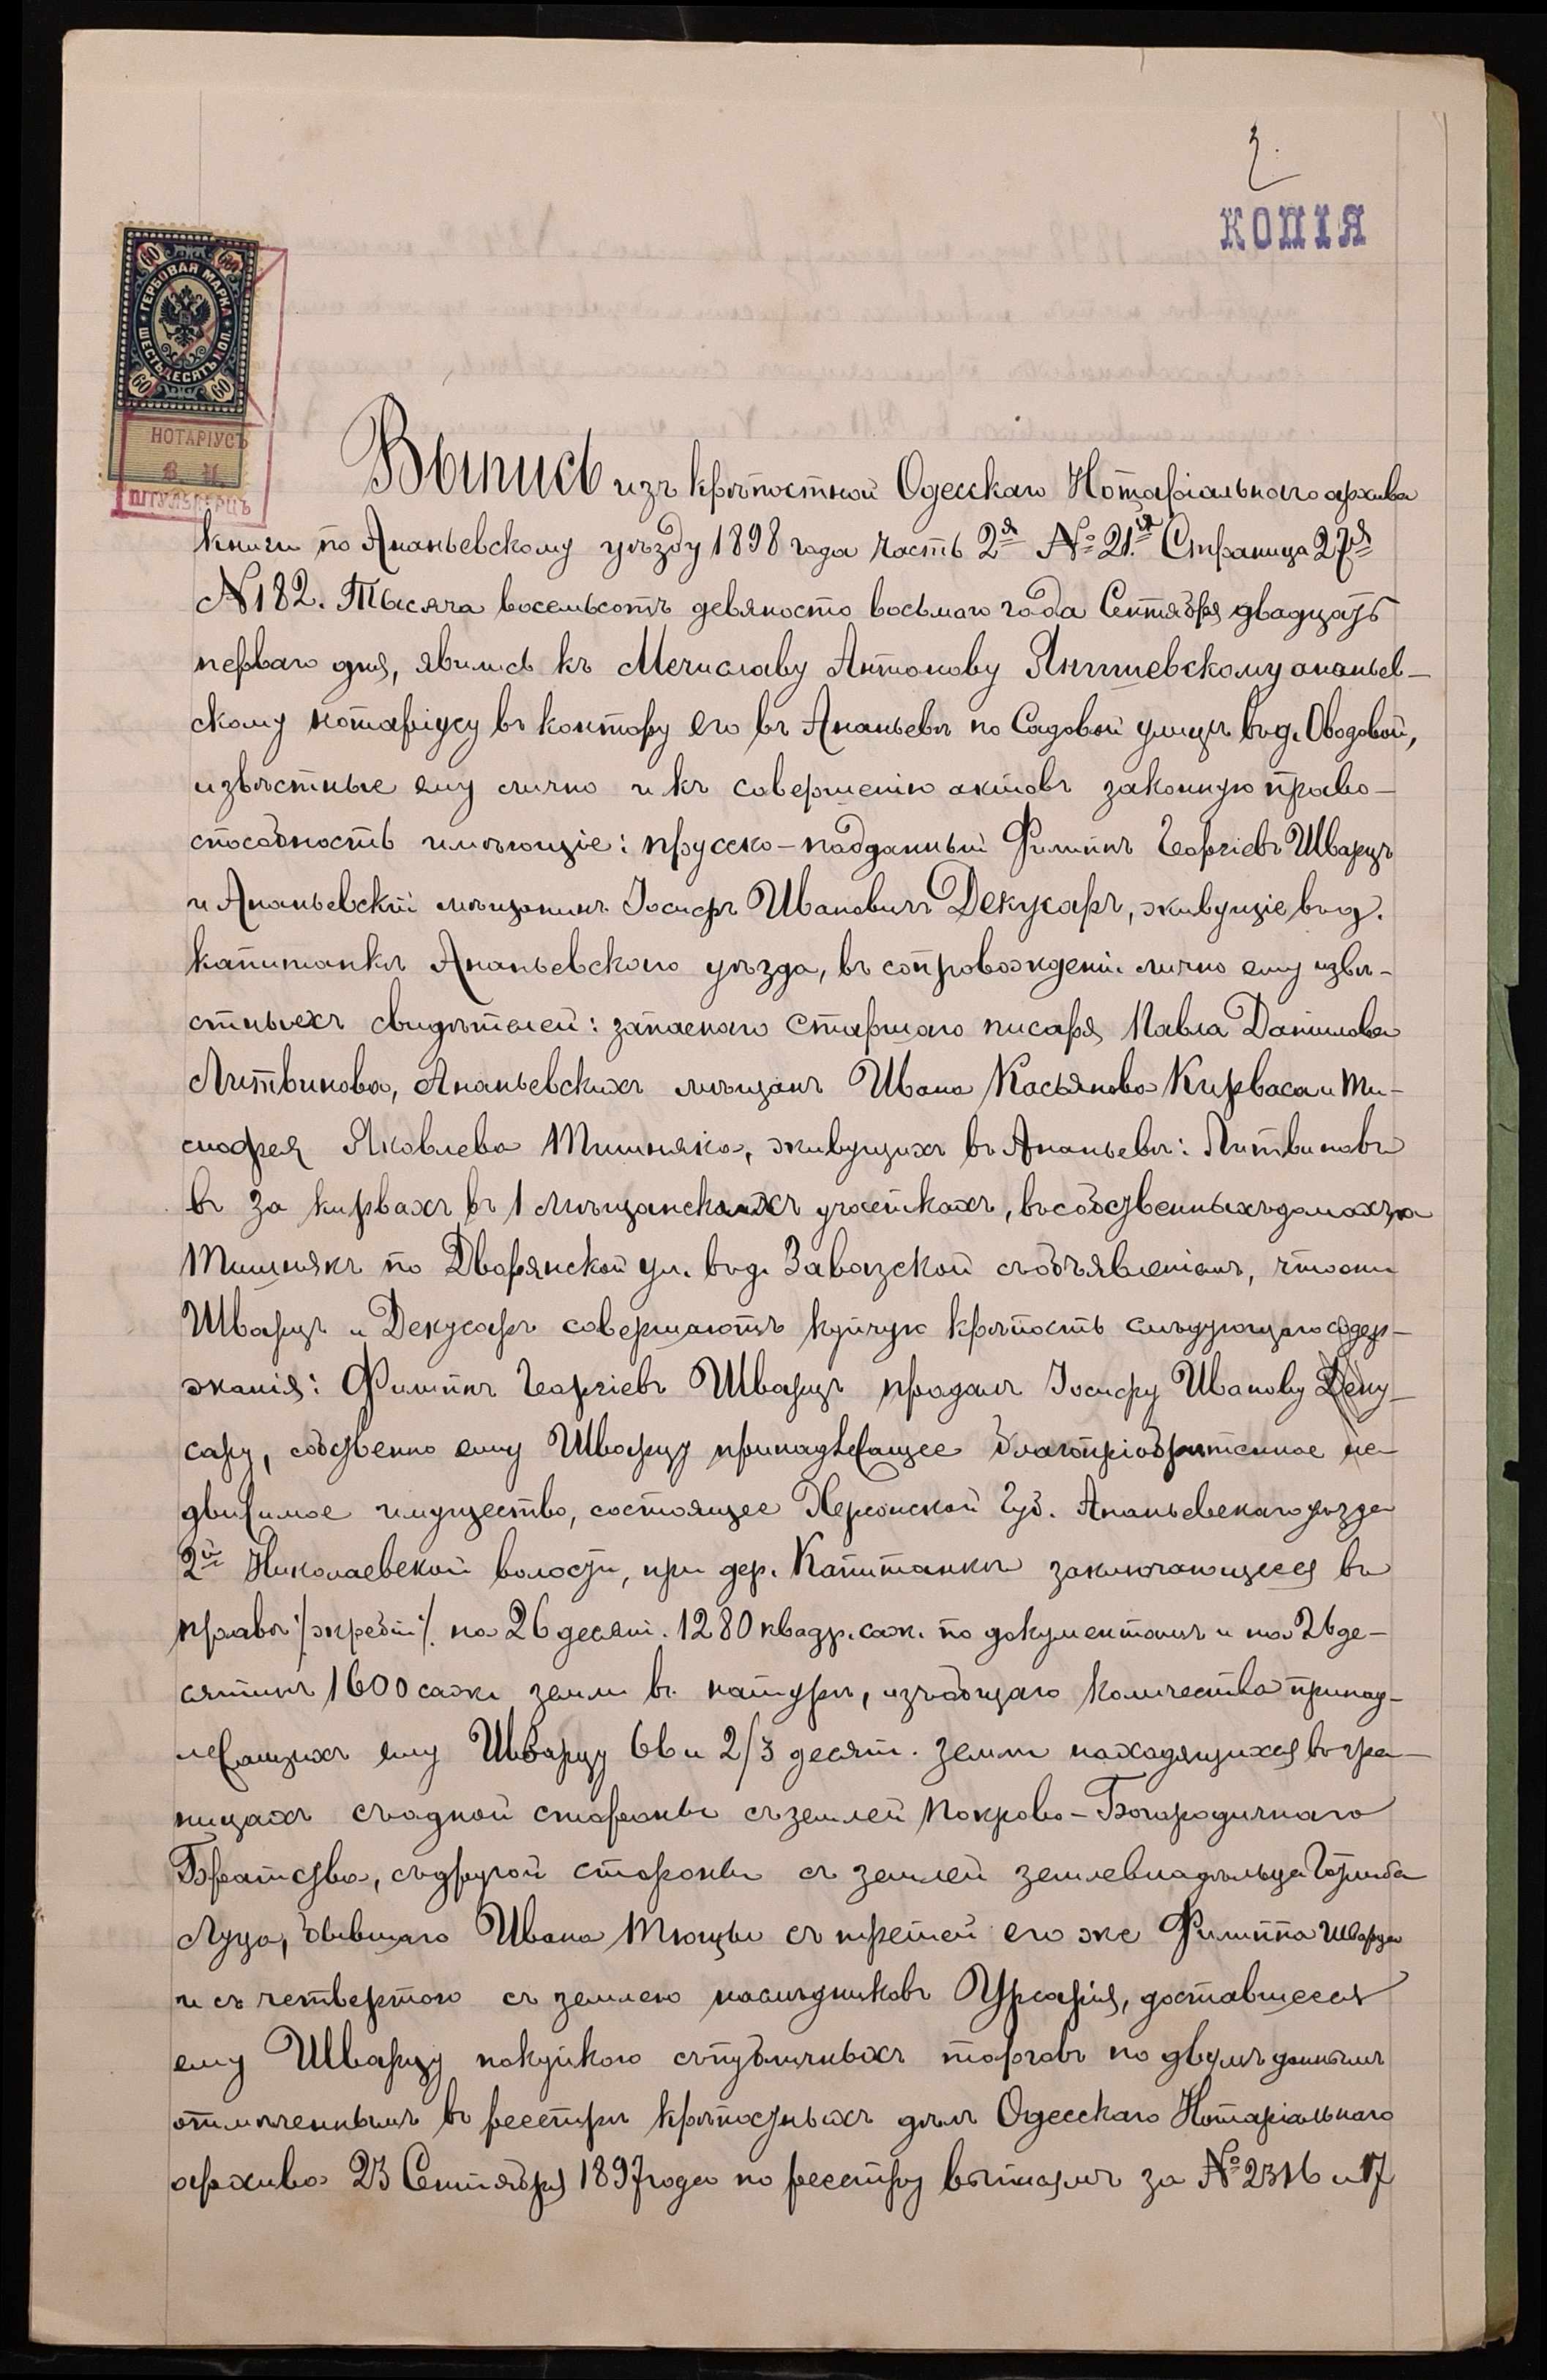 2.
КОПІЯ
60 60
ГЕРБОВАЯ МАРКА
ШЕСТЬДЕСЯТЪ КОП.
60 60
НОТАРІУСЪ
ШТУЛЬКЕРЦЪ
Выпись изъ крѣпостной Одесскаго Нотаріальнаго архива
книги по Ананьевскому уѣзду 1898 года часть 2я № 21.я Страница 27я
№ 182. Тысяча восемьсотъ девяносто восьмаго года Сентября двадцать
перваго дня, явились къ Мечиславу Антонову Янишевскому ананьев-
скому нотаріусу въ контору его въ Ананьевѣ по Садовой улицѣ въ д. Оводовой,
извѣстные ему лично и къ совершенію актовъ законную право-
способность имѣющіе: прусско-подданный Филиппъ Георгіевъ Шварцъ
и Ананьевскій мѣщанинъ Іосифъ Ивановичъ Декусаръ, живущіе въ д.
Капитанкѣ Ананьевскаго уѣзда, въ сопровожденіи лично ему извѣ-
стныхъ свидѣтелей: запаснаго старшаго писаря Павла Данилова
Литвинова, Ананьевскихъ мѣщанъ Ивана Касьянова Кирваса и Ти-
мофея Яковлева Тишняка, живущихъ въ Ананьевѣ: Литвиновъ
въ 3 а Кирвасъ въ 1 мѣщанскихъ участкахъ, въ собственныхъ домахъ, а
Тишнякъ по Дворянской ул. въ д. Завазской съ объявленіемъ, что они
Шварцъ и Декусаръ совершаютъ купчую крѣпость слѣдующаго содер-
жанія: Филиппъ Георгіевъ Шварцъ продалъ Іосифу Иванову Деку-
сару, собственно ему Шварцу принадлежащее благопріобрѣтенное не-
движимое имущество, состоящее Херсонской Губ. Ананьевскаго уѣзда
2й Николаевской волости, при дер. Капитанкѣ заключающееся въ
правѣ /жребіи/ на 26 десят. 1280 квадр. саж. по документамъ и на 26 де-
сятинъ 1600 саж. земли въ натурѣ, изъ общаго количества принад-
лежащихъ ему Шварцу 66 и 2/3 десят. земли находящихся въ гра-
ницахъ съ одной стороны съ землей Покрово-Богородичнаго
Братства, съ другой стороны съ землей землевладѣльца Готлиба
Луца, бывшаго Ивана Тюцы съ третей его же Филиппа Шварца
и съ четвертою съ землею наслѣдниковъ Урсарія, доставшееся
ему Шварцу покупкою съ публичныхъ торговъ по двумъ даннымъ
отмѣченнымъ въ реестрѣ крѣпостныхъ дѣлъ Одесскаго Нотаріальнаго
архива 23 Сентября 1897 года по реестру выписямъ за № 2316 и 17